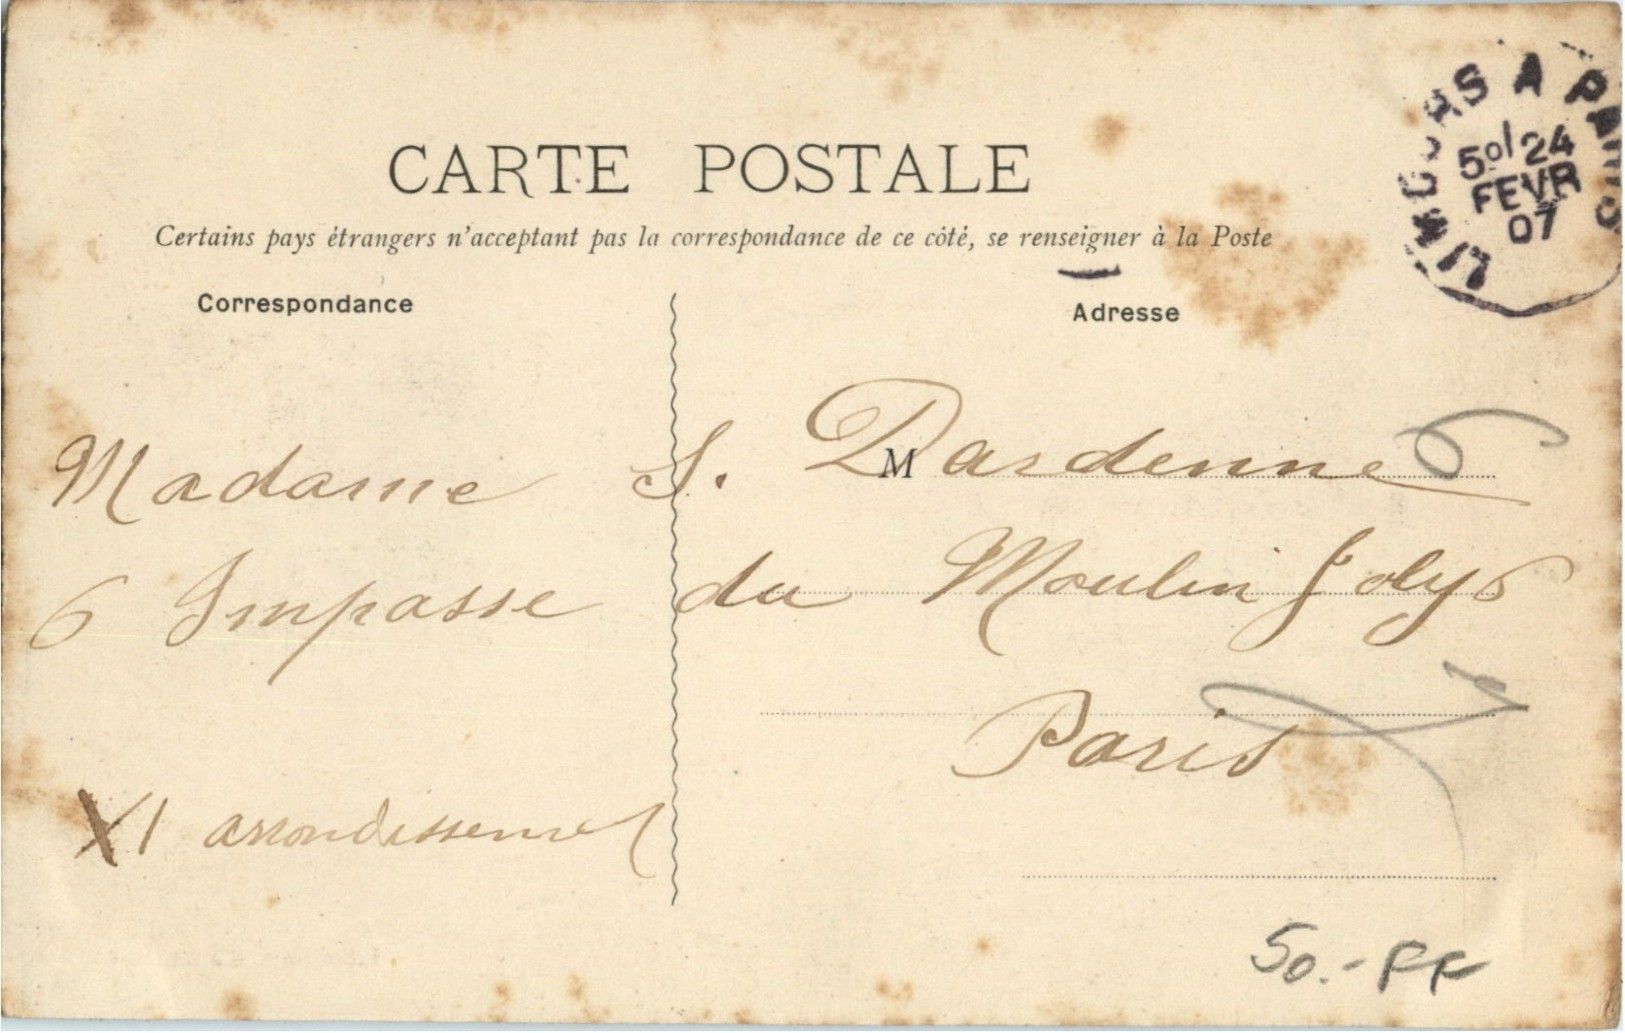 CARTE POSTALE
Certains pays étrangers n'acceptant pas la correspondance de ce côté, se renseigner à la Poste
Correspondance
Adresse
LIMOURS A PARIS
24
FEVR
07
M
Madame S. Dardenne
6 Impasse du Moulin Joly 6
Paris
XI arrondissement
50.- FF